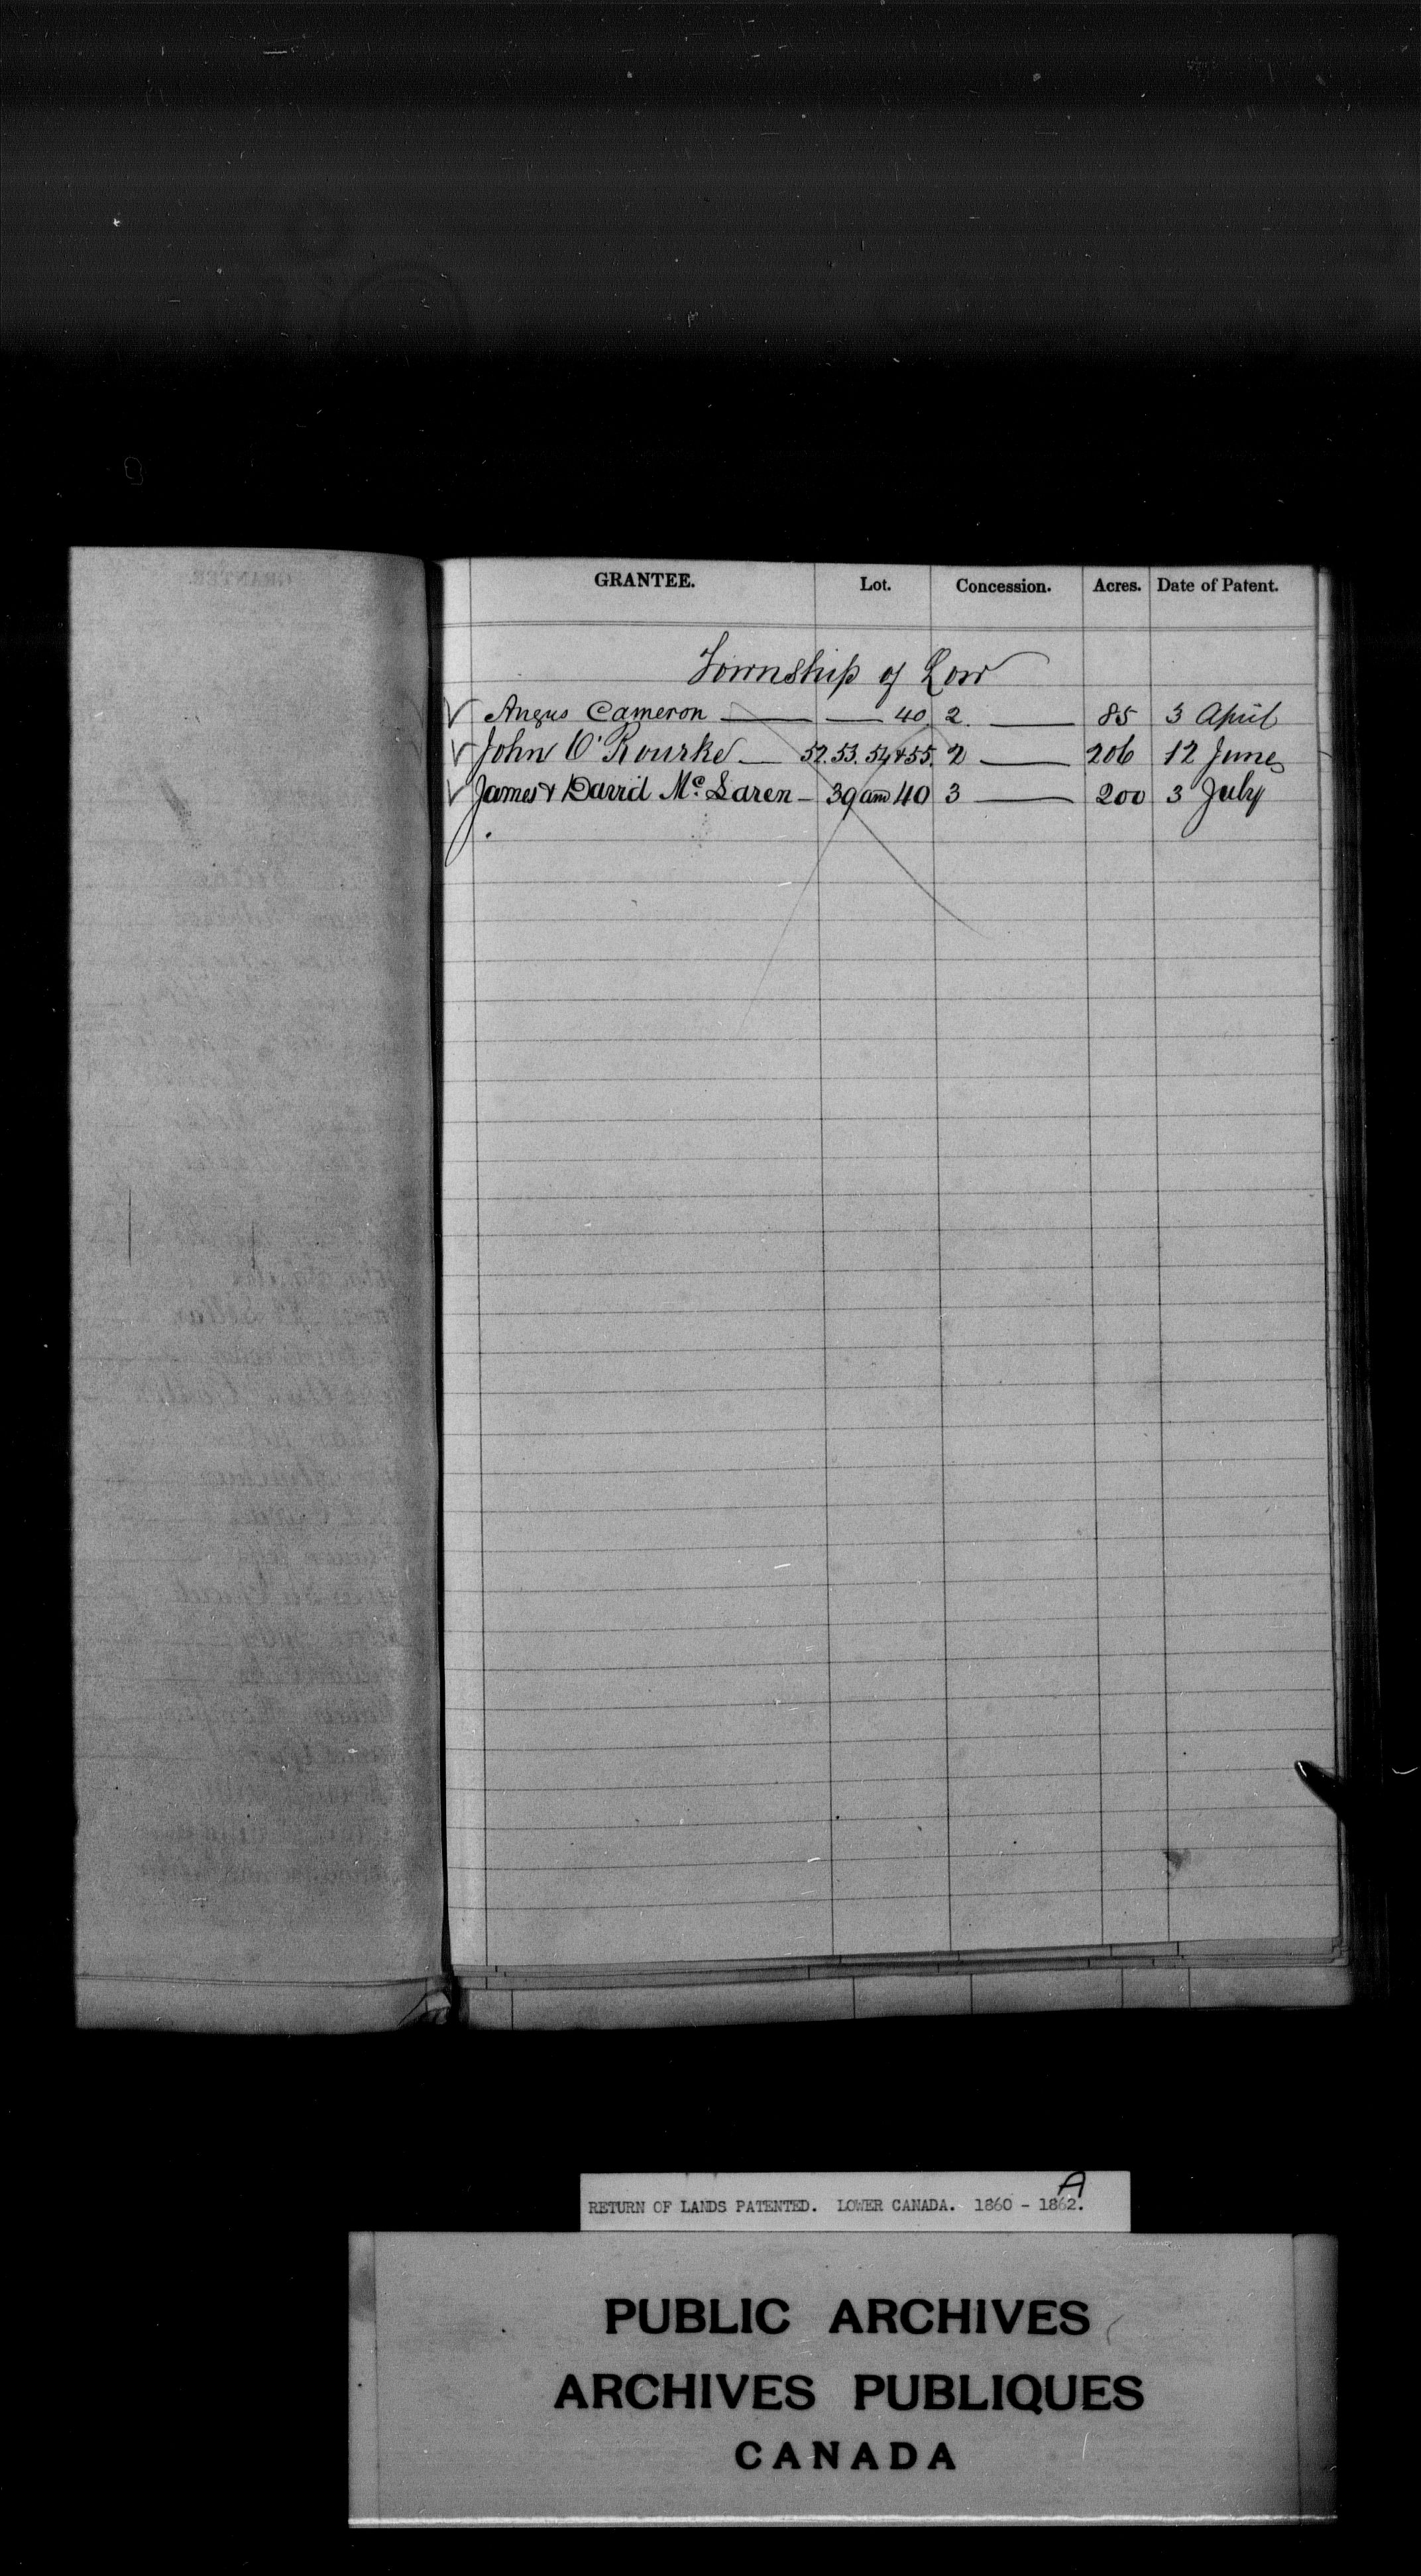 GRANTEE. Lot. Concession. Acres. Date of Patent.
Township of Low
Angus Cameron — — 40 2. — 85 3 April
John O'Rourke — 52. 53. 54 + 55. 2 — 206 12 June
James + David Mc. Laren — 39 and 40 3 — 200 3 July
RETURN OF LANDS PATENTED. LOWER CANADA. 1860 - 1862. A
PUBLIC ARCHIVES
ARCHIVES PUBLIQUES
CANADA